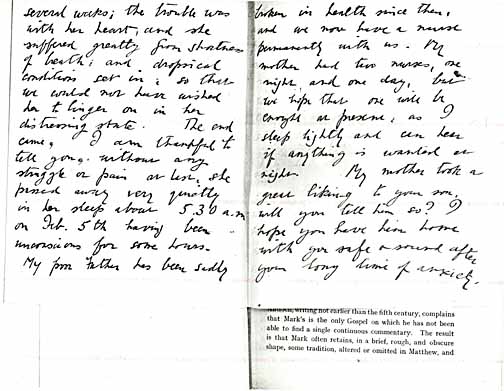 several weeks; the trouble was
with her heart, and she
suffered greatly from shortness
of breath; and dropsical
conditions set in; so that
we could not have wished
her to linger on in her
distressing state. The end
came, I am thankful to
tell you, without any
struggle or pain at last, she
passed away very quietly
in her sleep about 5.30 a.m
on Feb. 5th having been
unconscious for some hours.
My poor Father has been sadly
broken in health since then,
and we now have a nurse
permanently with us. My
mother had two nurses, one
night, and one day, but
we hope that one will be
enough at present, as I
sleep lightly and can hear
if anything is wanted at
night. My mother took a
great liking to your son,
will you tell him so? I
hope you have him home
with you safe & sound after
your long time of anxiety.
writing not earlier than the fifth century, complains
that Mark's is the only Gospel on which he has not been
able to find a single continuous commentary. The result
is that Mark often retains, in a brief, rough, and obscure
shape, some tradition, altered or omitted in Matthew, and